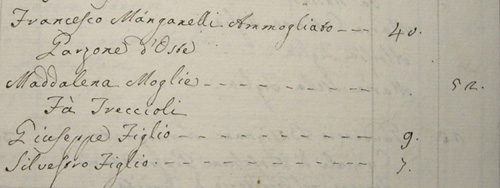 Francesco Manganelli Ammogliato --- 40.
Garzone d'Oste
Maddalena Moglie - - - - - - - - 52.
Fà Treccioli
Giuseppe Figlio - - - - - - - - 9.
Silvestro Figlio - - - - - - - - 7.